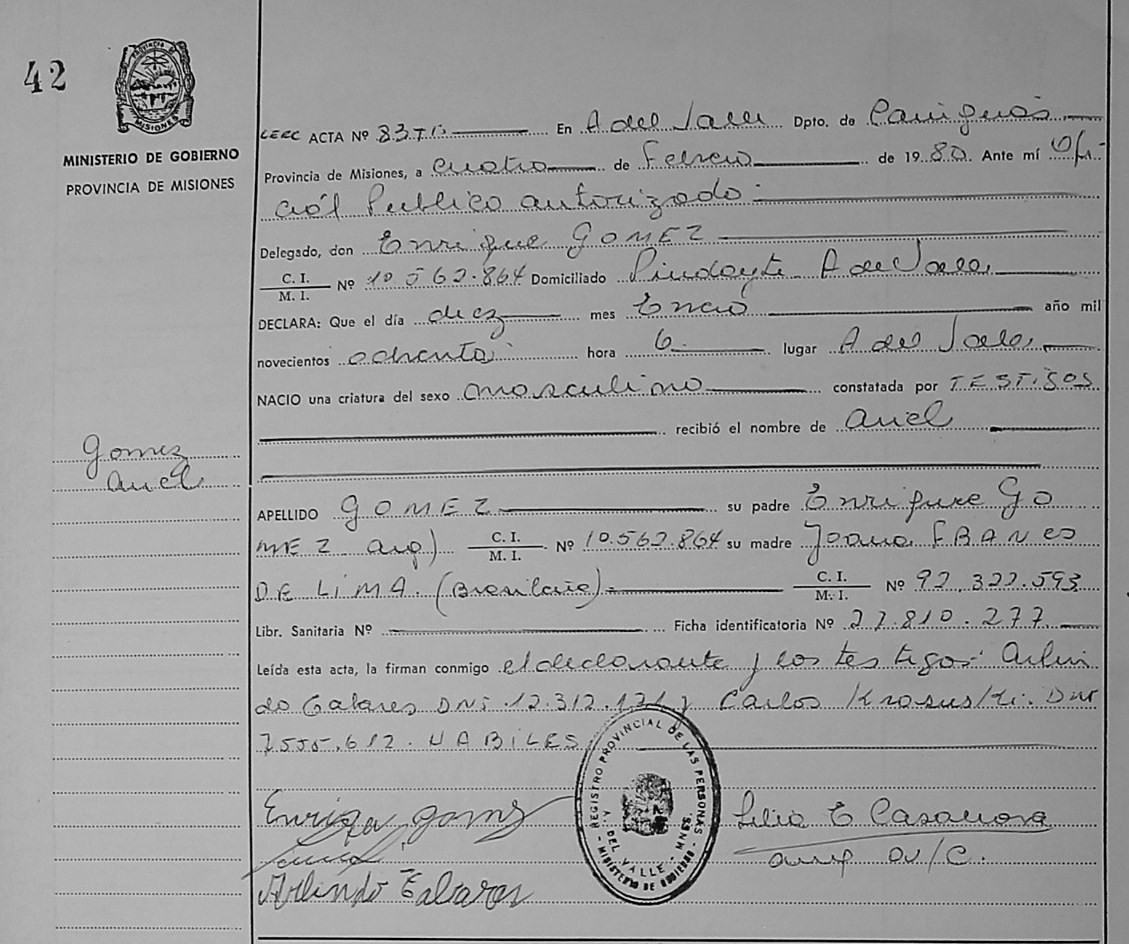 42
PROVINCIA DE
MISIONES
MINISTERIO DE GOBIERNO
PROVINCIA DE MISIONES
ACTA Nº 83 En A del Valle Dpto. de
Provincia de Misiones, a cuatro de Febrero de 1980. Ante mí Ofi-
cial Publico autorizado
Delegado, don Enrique GOMEZ
C. I.
M. I. Nº 10.562.864 Domiciliado A del Valle
DECLARA: Que el día diez mes Enero año mil
novecientos ochenta hora 6 lugar A del Valle
NACIO una criatura del sexo masculino constatada por TESTIGOS
recibió el nombre de Ariel
Gomez
Ariel
APELLIDO GOMEZ su padre Enrique GO
MEZ arg) C. I.
M. I. Nº 10.562.864 su madre Joana
DE LIMA. (Brasilera) C. I.
M. I. Nº 92.322.593
Libr. Sanitaria Nº Ficha identificatoria Nº 27.810.277
Leída esta acta, la firman conmigo el declarante y los testigos: Arlin
do DNI 12.312.121 y Carlos DNI
7555.612. HABILES
REGISTRO PROVINCIAL DE LAS PERSONAS
A. DEL VALLE - MNES.
MINISTERIO DE GOBIERNO
Gomez
E Casanova
Arlindo